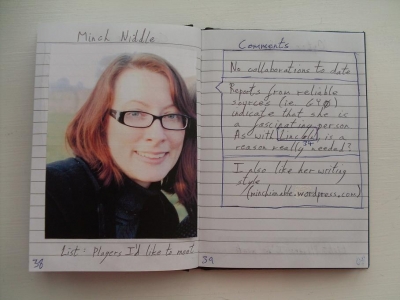 Minch Niddle
List: Players I'd like to meet
38
Comments
No collaborations to date
Reports from reliable
sources (ie. GYØ)
indicate that she is
a fascinating person
As with Lincoln, is a
reason really needed?
34
I also like her writing
style
(minchieable.wordpress.com)
39